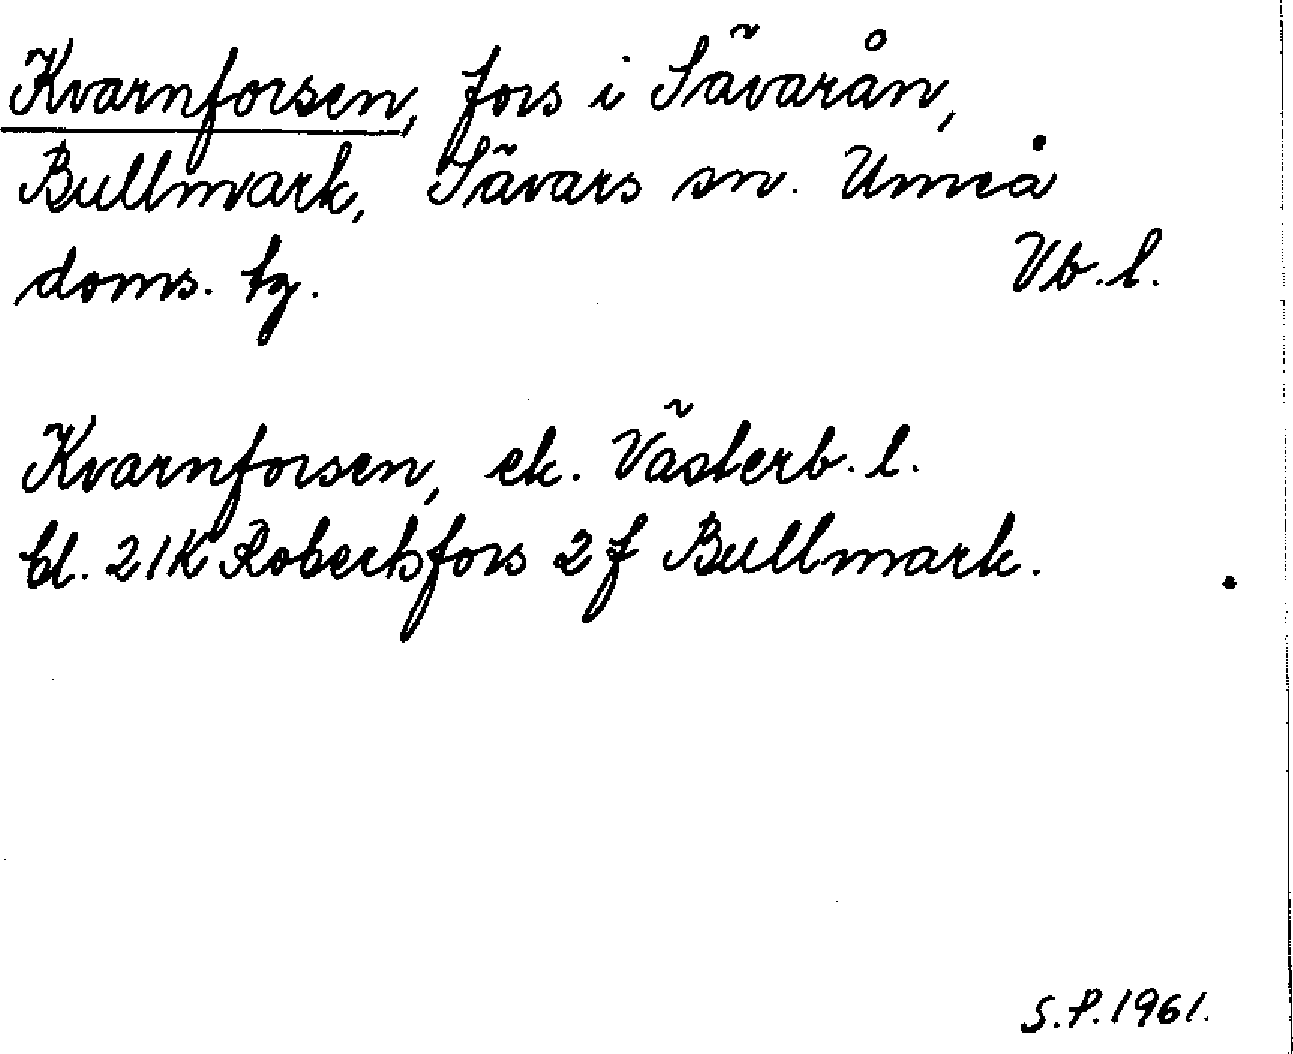 Kvarnforsen, fors i Sävarån,
Bullmark, Sävars sn. Umeå
doms. tg. Vb. l.
Kvarnforsen, ek. Västerb. l.
bl. 21K Robertsfors 2f Bullmark.
S.P. 1961.